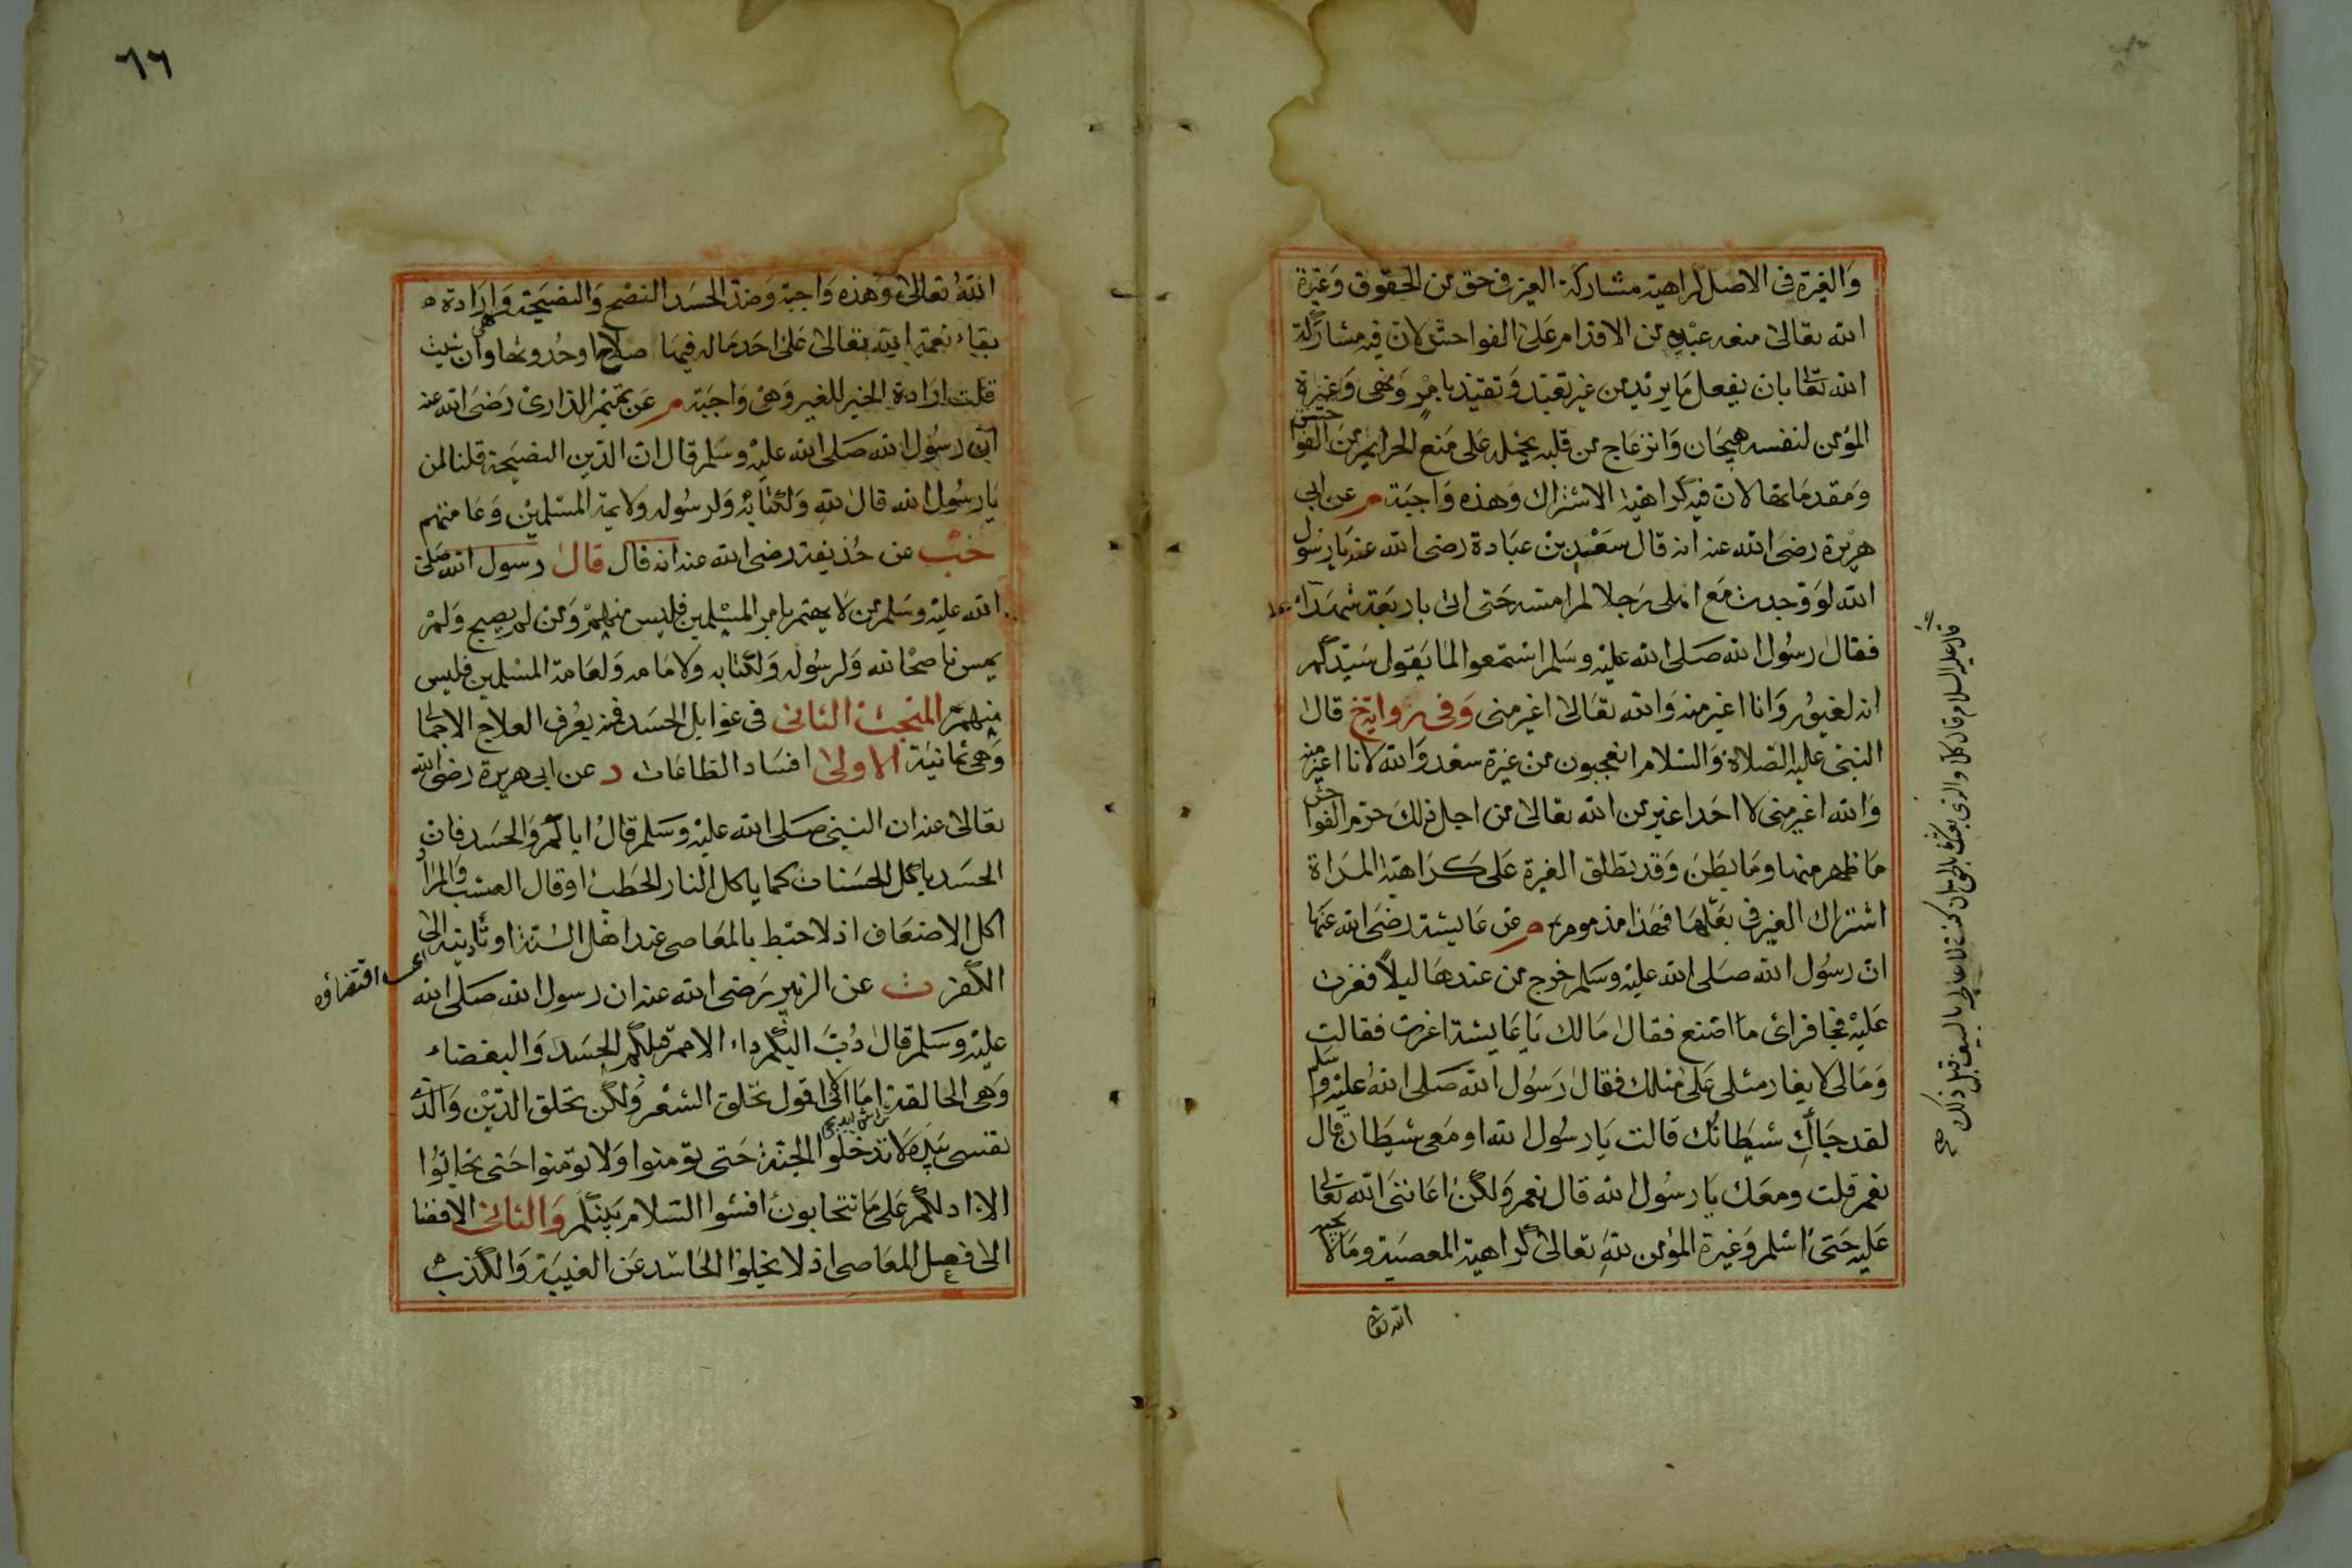 والغيرة فى الاصل كراهية مشاركة الغير فى حق من الحقوق وغيرة
الله تعالى منعه عبده من الاقدام على الفواحش لان فيه مشاركة
الله تعا بان يفعل ما يريد من غير تعبد وتقيد بامر ونهى وغيرة
المؤمن لنفسه هيجان وانزعاج من قلبه يحمله على منع الحرايم من الفواحش
ومقدماتها لان فيه كراهية الاشتراك وهذه واجبة م عن ابى
هريرة رضى الله عنه انه قال سعد بن عبادة رضى الله عنه يا رسول
الله لو وجدت مع اهلى رجلا لم امسه حتى اتى باربعة شهداء
فقال رسول الله صلى الله عليه وسلم استمعوا لما يقول سيدكم
انه لغيور وانا اغير منه والله تعالى اغير منى وفى رواية خ قال
النبى عليه الصلاة والسلام اتعجبون من غيرة سعد والله لانا اغير منه
والله اغير منى لا احد اغير من الله تعالى من اجل ذلك حرم الفواحش
ما ظهر منها وما بطن وقد تطلق الغيرة على كراهية المراة
اشتراك الغير فى بعلها فهذا مذموم م عن عايشة رضى الله عنها
ان رسول الله صلى الله عليه وسلم خرج من عندها ليلا فغرت
عليه فجا فراى ما اصنع فقال مالك يا عايشة اغرت فقالت
ومالى لا يغار مثلى على مثلك فقال رسول الله صلى الله عليه وسلم
لقد جاءك شيطانك قالت يا رسول الله او معى شيطان قال
نعم قلت ومعك يا رسول الله قال نعم ولكن اعاننى الله تعا
عليه حتى اسلم وغيرة المؤمن لله تعالى كراهية المعصية وما لا يحبه
الله تعا
قال عليه السلام قال كلا والذى بعثك بالحق ان كنت لاعاجله بالسيف قبل ذلك صح
٦٦
الله تعالى وهذه واجبة وضد الحسد النصح والنصيحة وارادة
بقاء نعمة الله تعالى على احد ماله فيها صلاح وحدوثها وان شئت
قلت ارادة الخير للغير وهى واجبة م عن تميم الدارى رضى الله عنه
ان رسول الله صلى الله عليه وسلم قال ان الدين النصيحة قلنا لمن
يا رسول الله قال لله ولكتابه ولرسوله ولايمة المسلمين وعامتهم
عن حذيفة رضى الله عنه انه قال قال رسول الله صلى
الله عليه وسلم من لا يهتم بامر المسلمين فليس منهم ومن لم يصبح ولم
يمس ناصحا لله ولرسوله ولكتابه ولامامه ولعامة المسلمين فليس
منهم المبحث الثانى فى غوايل الحسد فمنه يعرف العلاج الاجمالى
وهى ثمانية الاولى افساد الطاعات د عن ابى هريرة رضى الله
تعالى عنه ان النبى صلى الله عليه وسلم قال اياكم والحسد فان
الحسد ياكل الحسنات كما ياكل النار الحطب او قال العشب والمراد
اكل الاضعاف اذ لا حبط بالمعاصى عند اهل السنة او تاديته الى
اى اقتضاؤه
الكفر ت عن الزبير رضى الله عنه ان رسول الله صلى الله
عليه وسلم قال دب اليكم داء الامم قبلكم الحسد والبغضاء
وهى الحالقة اما انى لا اقول تحلق الشعر ولكن تحلق الدين والذى
نفسى بيده لا تدخلوا الجنة حتى تومنوا ولا تومنوا حتى تحابوا
الا ادلكم على ما تتحابون افشوا السلام بينكم والثانى الافضا
الى فعل المعاصى اذ لا يخلوا الحاسد عن الغيبة والكذب